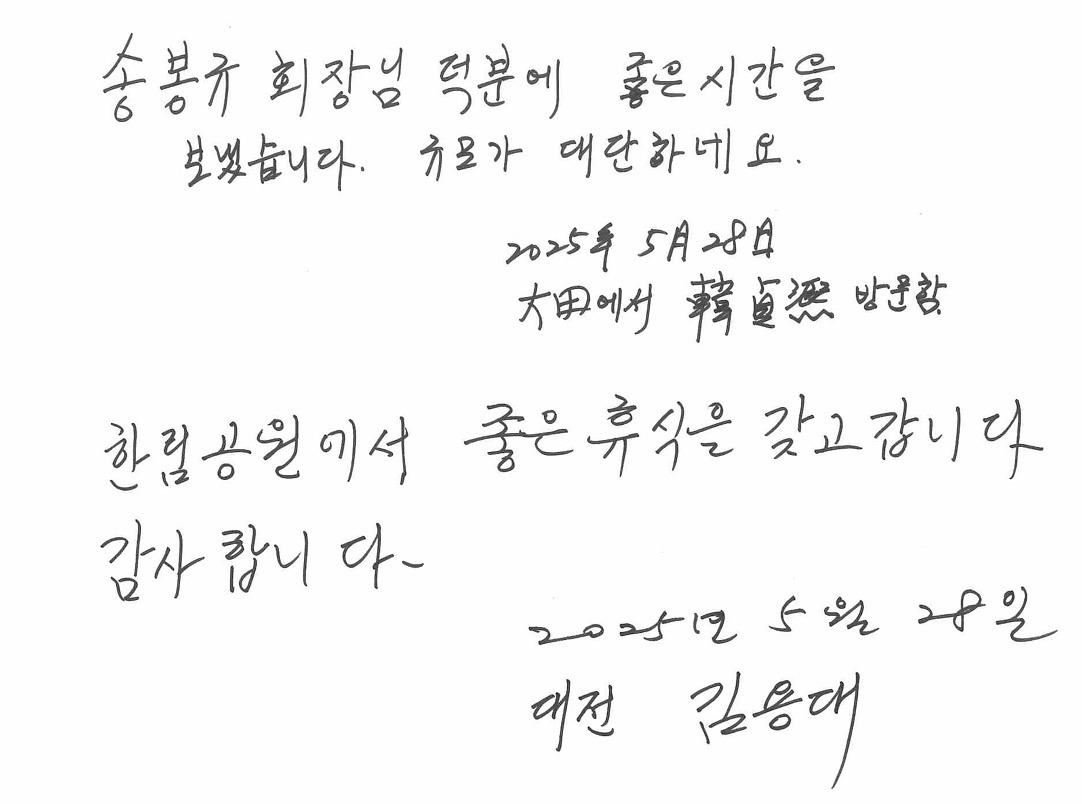 송봉규 회장님 덕분에 좋은 시간을
보냈습니다. 규모가 대단하네요.
2025年 5月 28日
大田에서 韓貞 방문함
한림공원에서 좋은 휴식을 갖고 갑니다
감사합니다-
2025년 5월 28일
대전 김용대